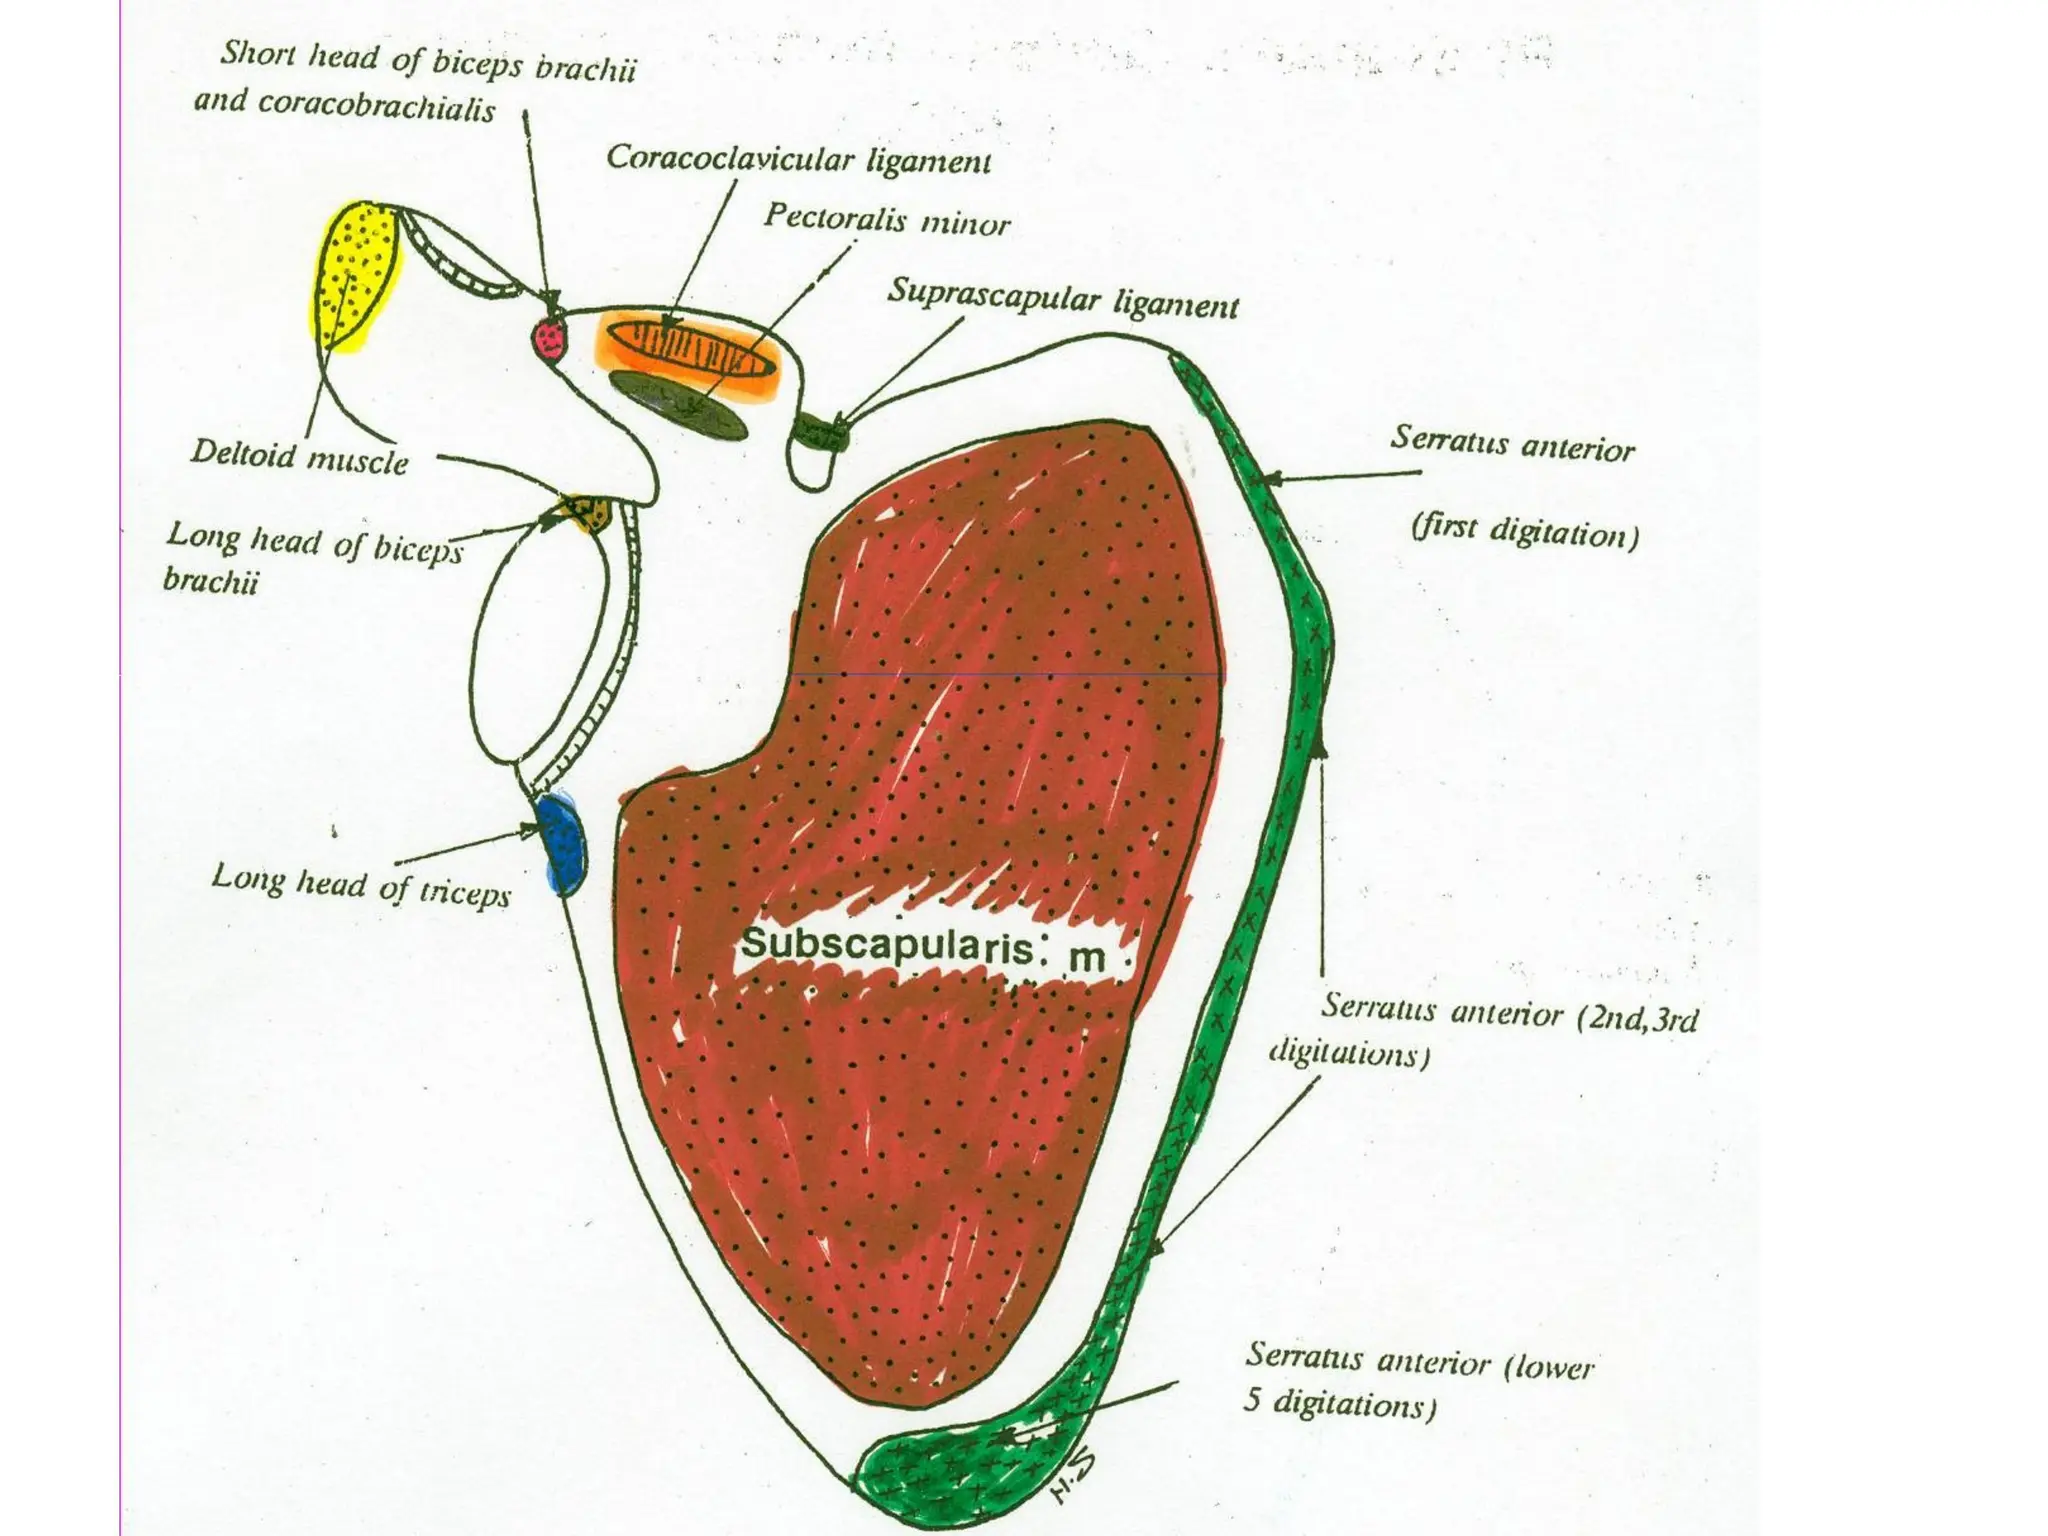 Short head of biceps brachii
and coracobrachialis
Coracoclavicular ligament
Pectoralis minor
Suprascapular ligament
Serratus anterior
(first digitation)
Deltoid muscle
Long head of biceps
brachii
Long head of triceps
Subscapularis: m
Serratus anterior (2nd,3rd
digitations)
Serratus anterior (lower
5 digitations)
H.S